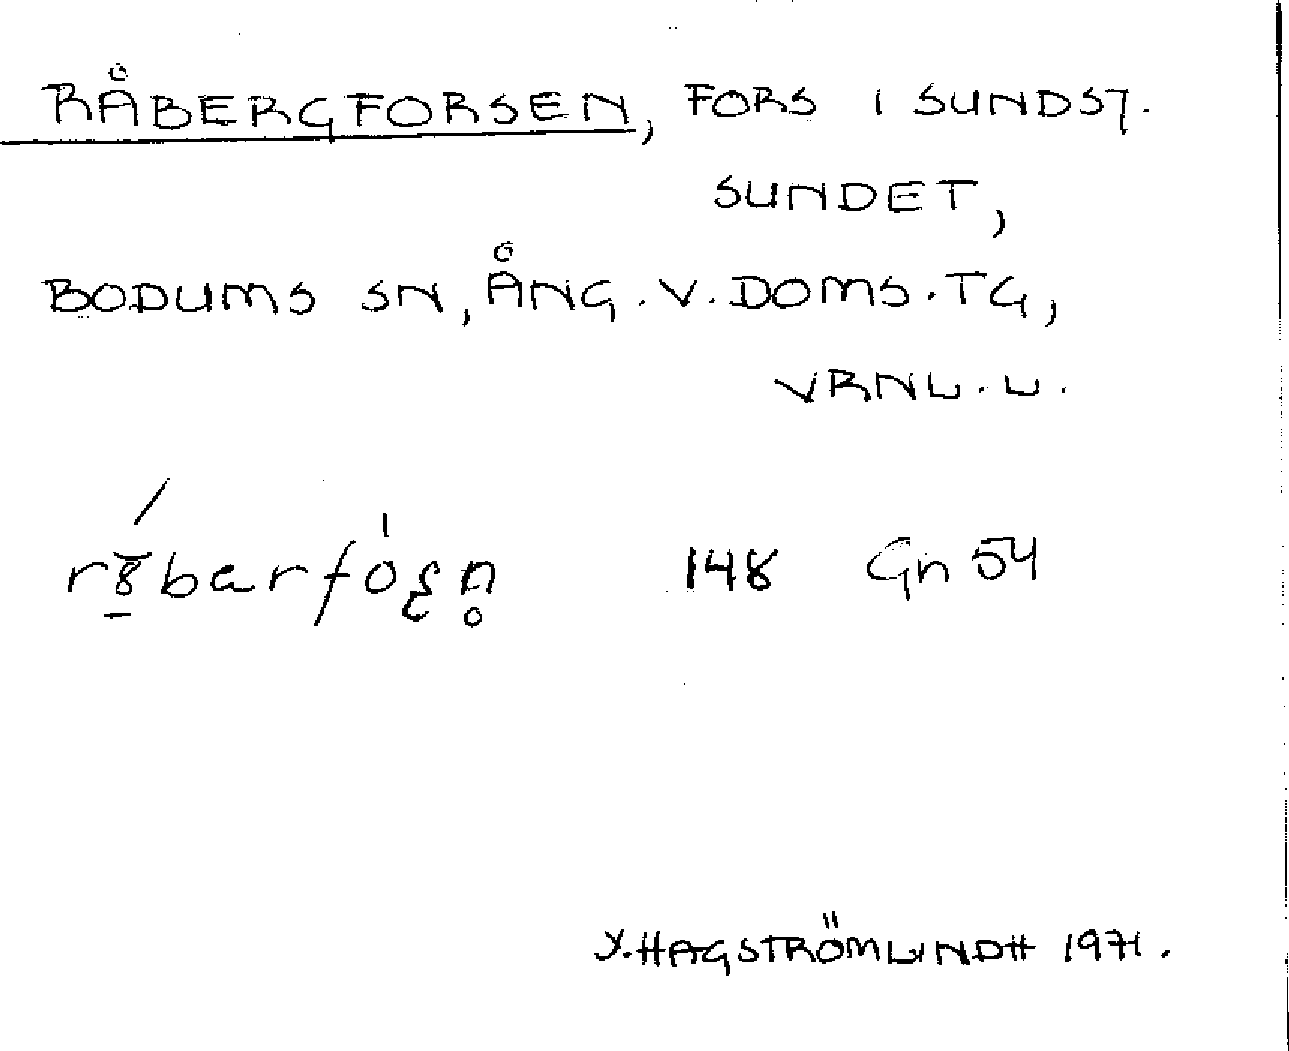 RÅBERGFORSEN, FORS I SUNDST.
SUNDET,
BODUMS SN, ÅNG. V. DOMS. TG,
VRNL. L.
148 Gn 54
Y. HAGSTRÖMLINDH 1971.